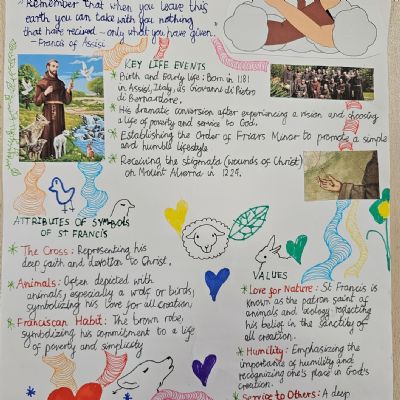 "Remember that when you leave this
earth you can take with you nothing
that have recived - only what you have given."
- Francis of Assisi
KEY LIFE EVENTS
* Birth and Early life: Born in 1181
in Assisi, Italy, as Giovanni di Pietro
di Bernardone.
* His dramatic conversion after experiencing a vision and choosing
a life of poverty and service to God.
* Establishing the Order of Friars Minor to promote a simple
and humble lifestyle
* Receiving the stigmata (wounds of Christ)
on Mount Alverna in 1224.
ATTRIBUTES OF SYMBOLS
OF ST FRANCIS
* The Cross: Representing his
deep faith and devotion to Christ.
* Animals: Often depicted with
animals, especially a wolf or birds,
symbolizing his love for all creation
* Franciscan Habit: The brown robe,
symbolizing his commitment to a life
of poverty and simplicity
VALUES
* Love for Nature: St Francis is
known as the patron saint of
animals and ecology, reflecting
his belief in the sanctity of
all creation.
* Humility: Emphasizing the
importance of humility and
recognizing one's place in God's
creation.
* Service to Others: A deep